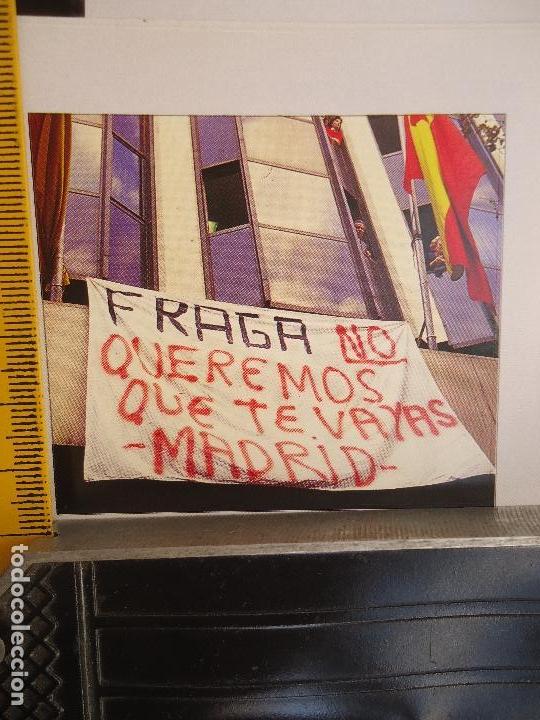 FRAGA NO
QUEREMOS
QUE TE VAYAS
-MADRID-
todocoleccion.net